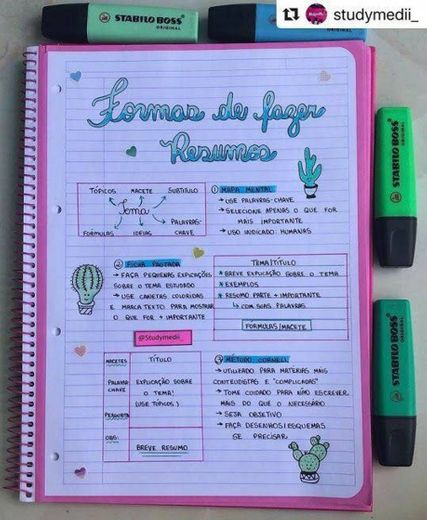 STABILO BOSS
ORIGINAL
studymedii_
Formas de fazer
Resumos
TÓPICOS MACETE SUBTÍTULO
Tema
FÓRMULAS IDEIAS PALAVRAS-
CHAVE
1 MAPA MENTAL
→ USE PALAVRAS-CHAVE
→ SELECIONE APENAS O QUE FOR
MAIS IMPORTANTE
→ USO INDICADO: HUMANAS
2 FICHA PAUTADA
→ FAÇA PEQUENAS EXPLICAÇÕES
SOBRE O TEMA ESTUDADO
→ USE CANETAS COLORIDAS
E MARCA TEXTO PARA MOSTRAR
O QUE FOR + IMPORTANTE
@Studymedii_
TEMA/TÍTULO
* BREVE EXPLICAÇÃO SOBRE O TEMA
* EXEMPLOS
* RESUMO PARTE + IMPORTANTE
↳ COM SUAS PALAVRAS
FÓRMULAS/MACETE
MACETES
PALAVRA
CHAVE
PERGUNTA
OBS:
TÍTULO
EXPLICAÇÃO SOBRE
O TEMA!
(USE TÓPICOS)
BREVE RESUMO
3 MÉTODO CORNELL
→ UTILIZADO PARA MATÉRIAS MAIS
CONTEUDISTAS E "COMPLICADAS"
→ TOME CUIDADO PARA NÃO ESCREVER
MAIS DO QUE O NECESSÁRIO
→ SEJA OBJETIVO
→ FAÇA DESENHOS/ESQUEMAS
SE PRECISAR.
STABILO BOSS
ORIGINAL
STABILO BOSS
ORIGINAL